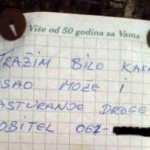 Više od 50 godina sa Vama
TRAŽIM BILO KAKA
SAO MOŽE I
ASTURANJO DROGE
OBITEL 062-